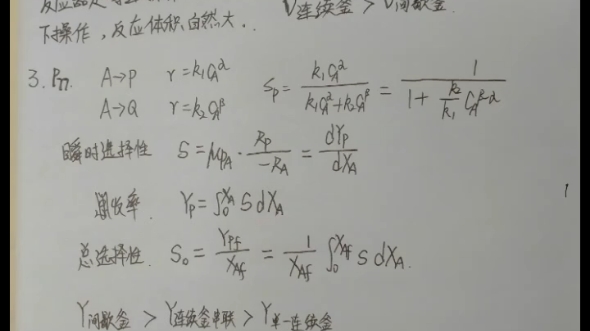 下操作,反应体积自然大.. V连续釜 > V间歇釜
3. P77. A→P r=k₁C_A^α S_P = k₁C_A^α / (k₁C_A^α+k₂C_A^β) = 1 / (1 + k₂/k₁ C_A^{β-α})
A→Q r=k₂C_A^β
瞬时选择性 S = μ_PA · R_P / -R_A = dY_P / dX_A
总收率. Y_P = ∫₀^{X_A} S dX_A
总选择性. S₀ = Y_Pf / X_Af = 1 / X_Af ∫₀^{X_Af} S dX_A.
Y间歇釜 > Y连续釜串联 > Y单一连续釜